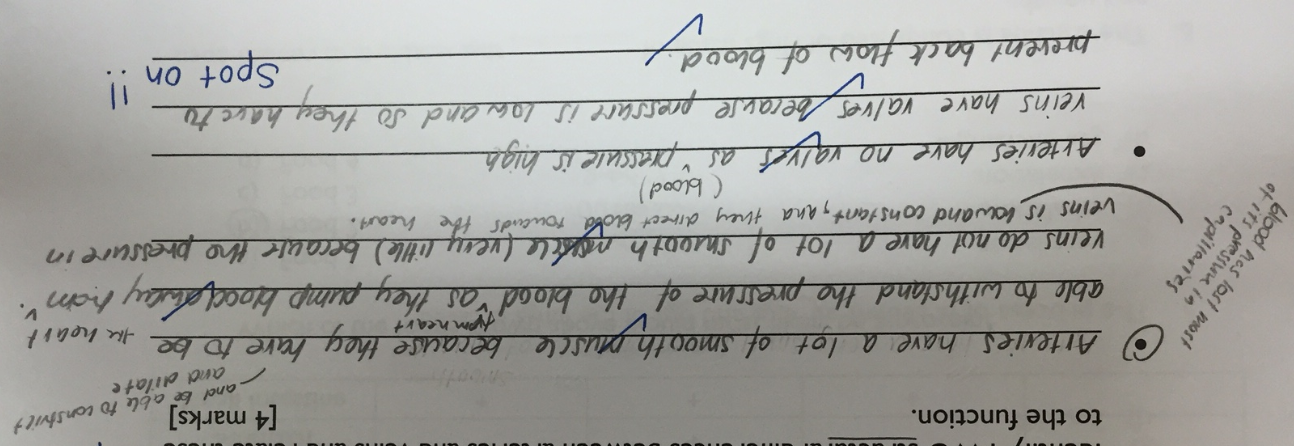 Identify TWO structural differences between arteries and veins and relate these
to the function. [4 marks]
and be able to constrict
and dilate
Arteries have a lot of smooth muscle because they have to be
able to withstand the pressure of the blood from heart as they pump blood away from the heart.
veins do not have a lot of smooth muscle (very little) because the pressure in
veins is low and constant, and they direct blood towards the heart.
blood has lost most
of its pressure in
capillaries
Arteries have no valves as (blood) pressure is high
veins have valves because pressure is low and so they have to
prevent back flow of blood.
Spot on !!